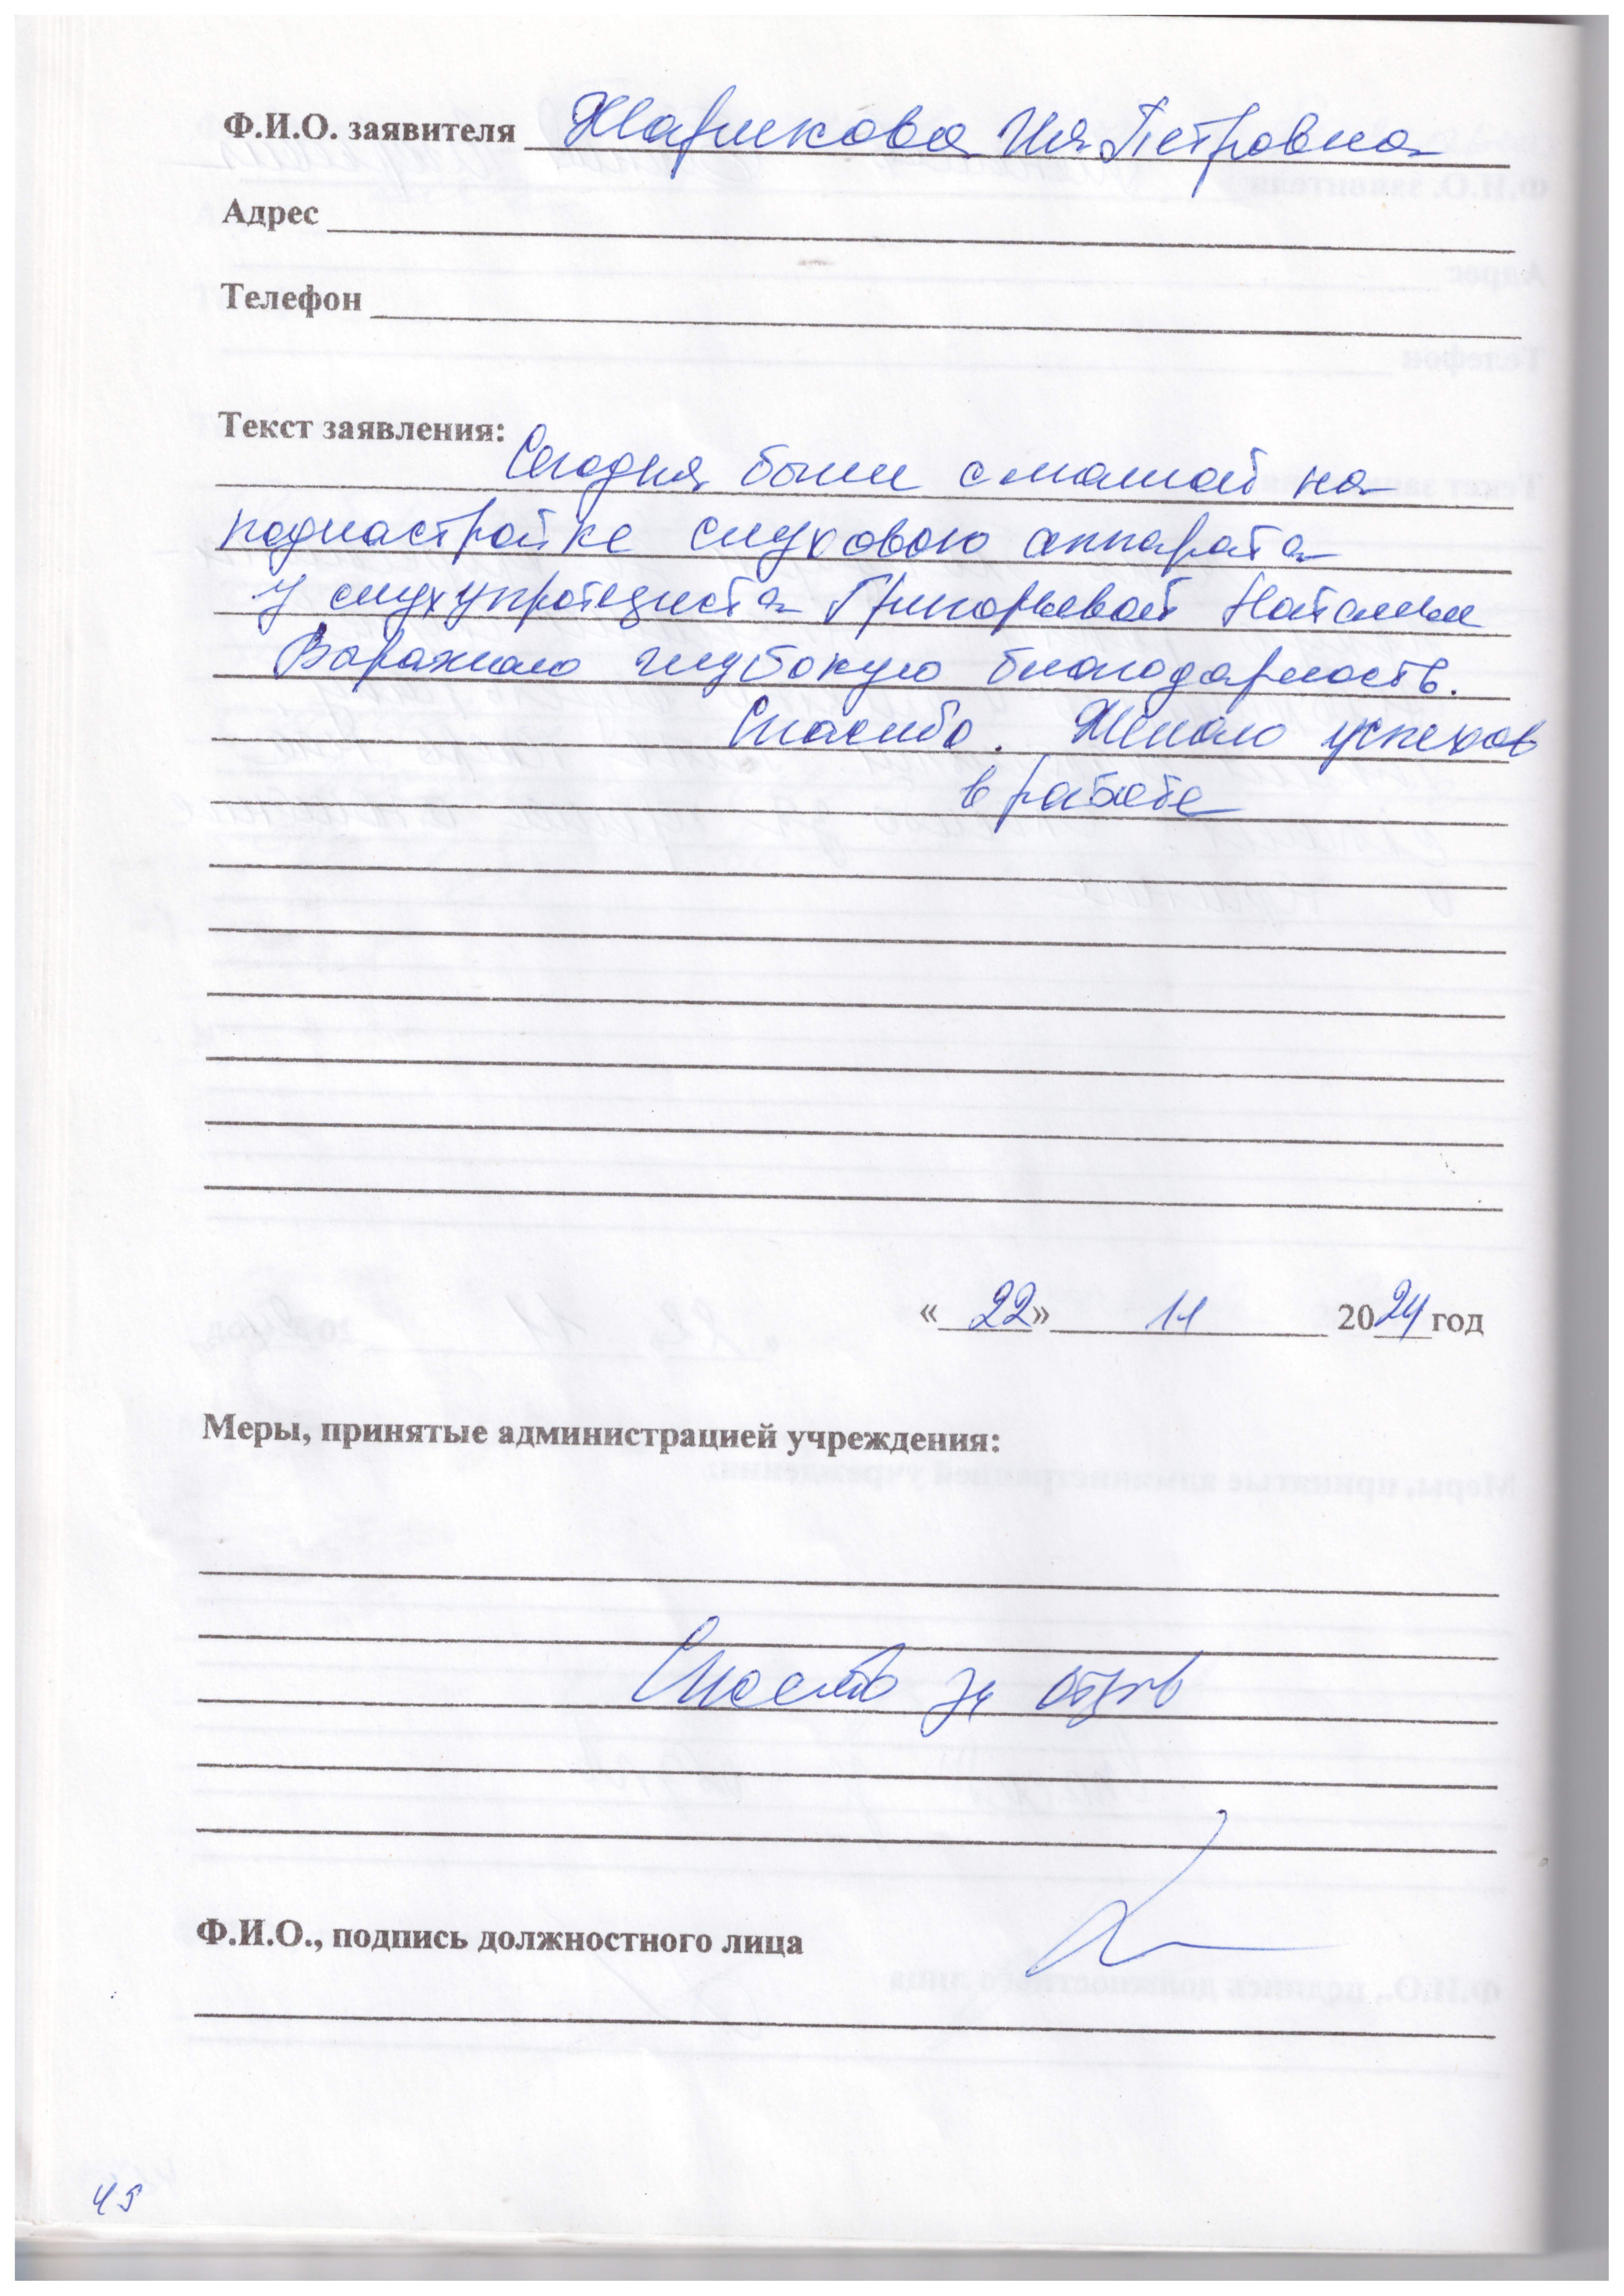 Ф.И.О. заявителя Жарикова Ия Петровна
Адрес
Телефон
Текст заявления:
Сегодня были с мамой на
поднастройке слухового аппарата
у слухупротезиста Григорьевой Натальи
Выражаю глубокую благодарность.
Спасибо. Желаю успехов
в работе
«22» 11 2024 год
Меры, принятые администрацией учреждения:
Спасибо за отзыв
Ф.И.О., подпись должностного лица
45